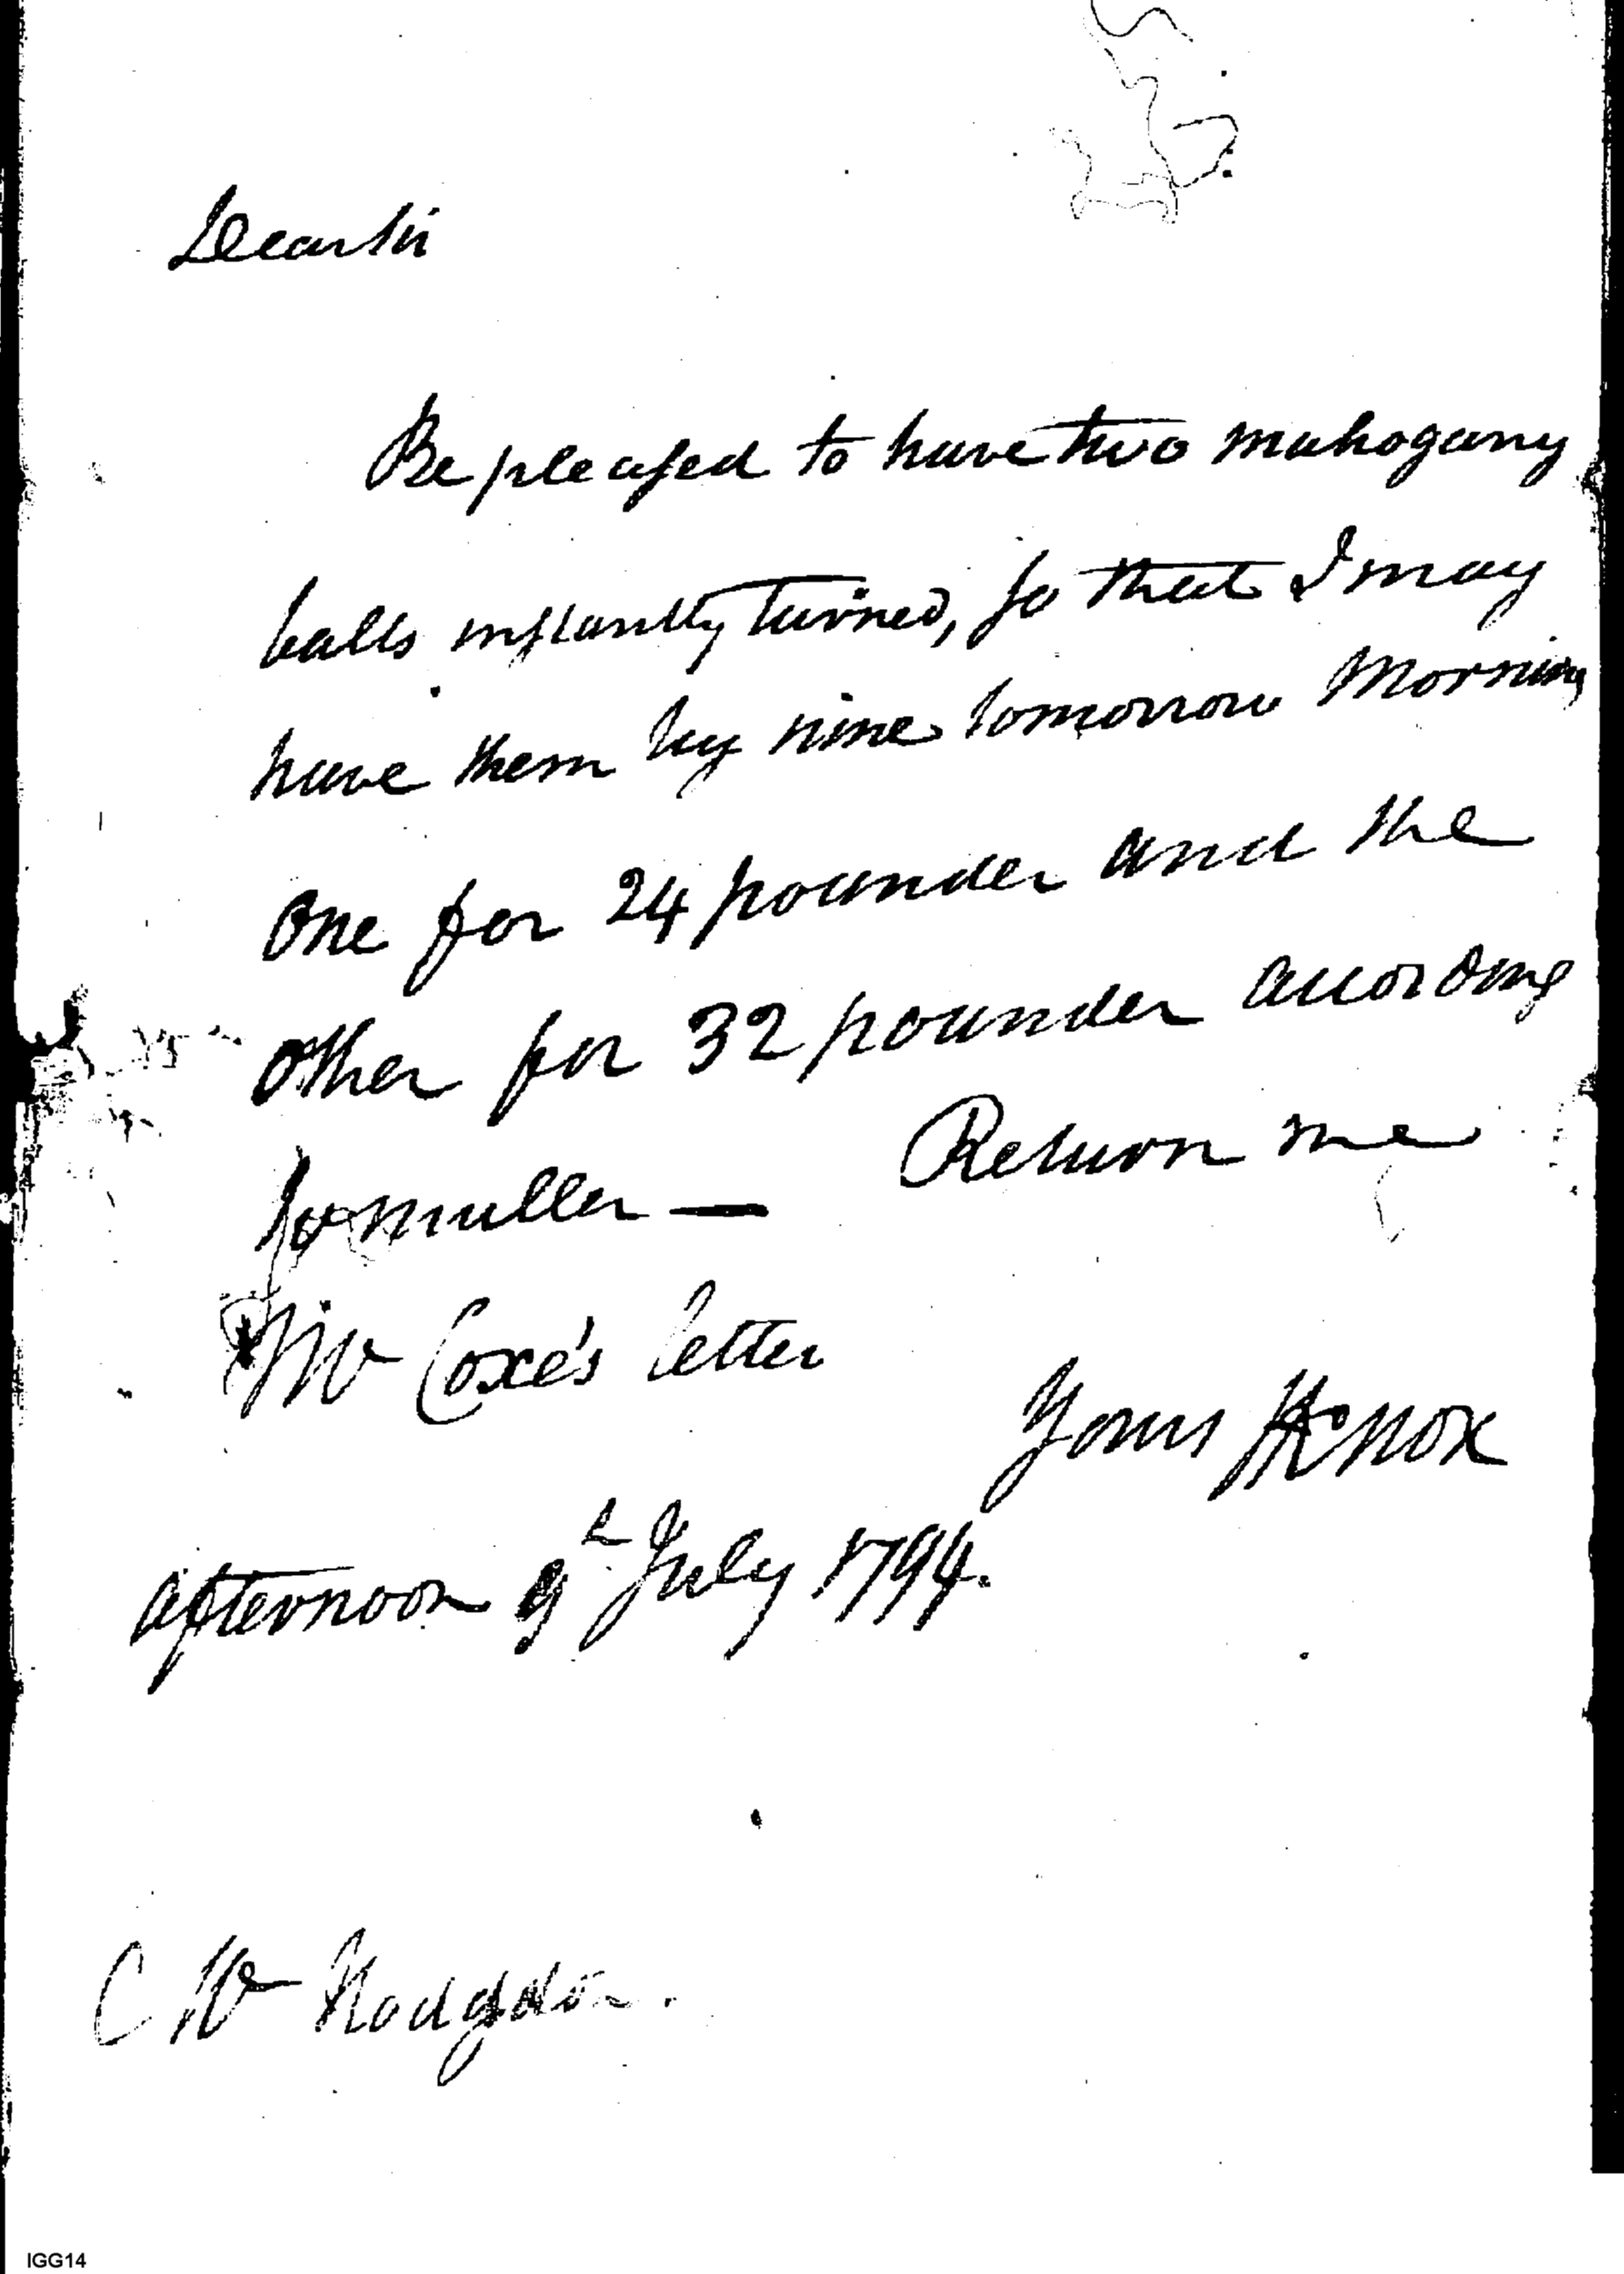 Dear Sir
Be pleased to have two mahogany
balls instantly turned, so that I may
have them by nine tomorrow morning
One for 24 pounder and the
Other for 32 pounder according
to muller — Return me
Mr Coxe's letter
Yours HKnox
afternoon 9th July 1794.
Mr Hodgdon.
IGG14